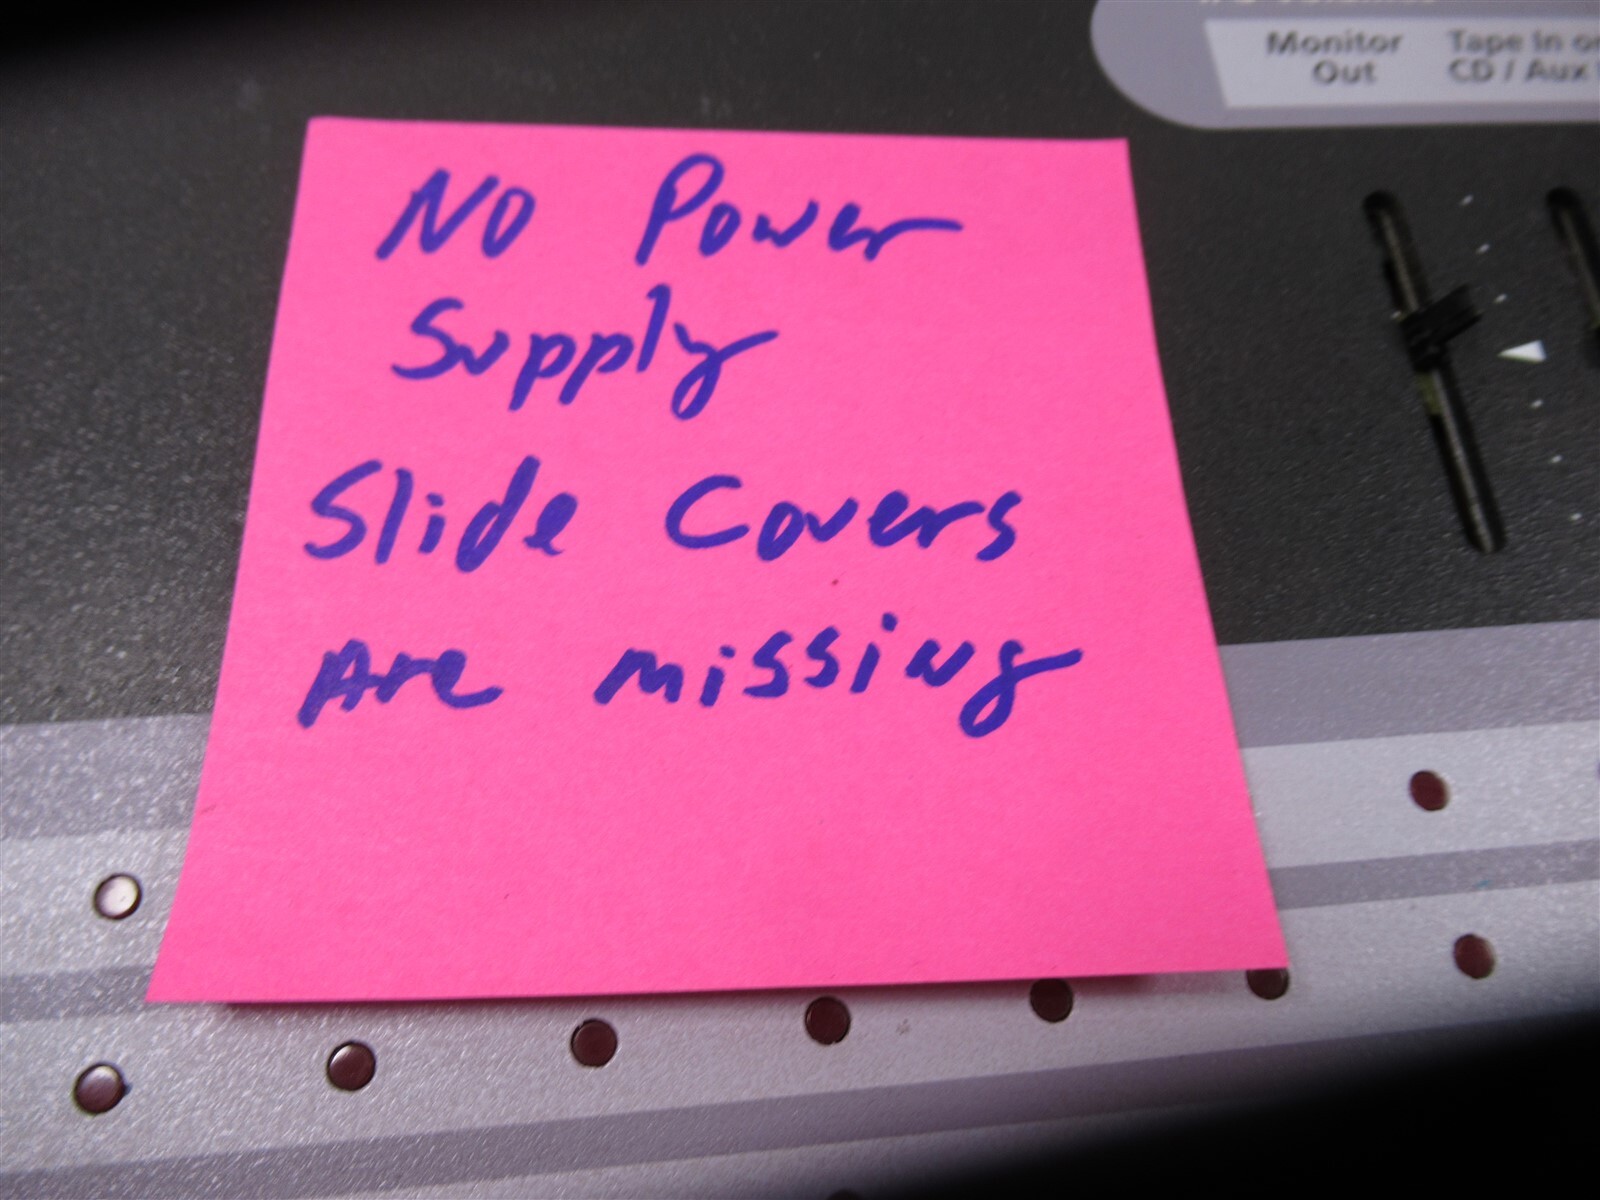 Monitor
Out
Tape In or
CD / Aux
No Power
Supply
Slide Covers
Are missing